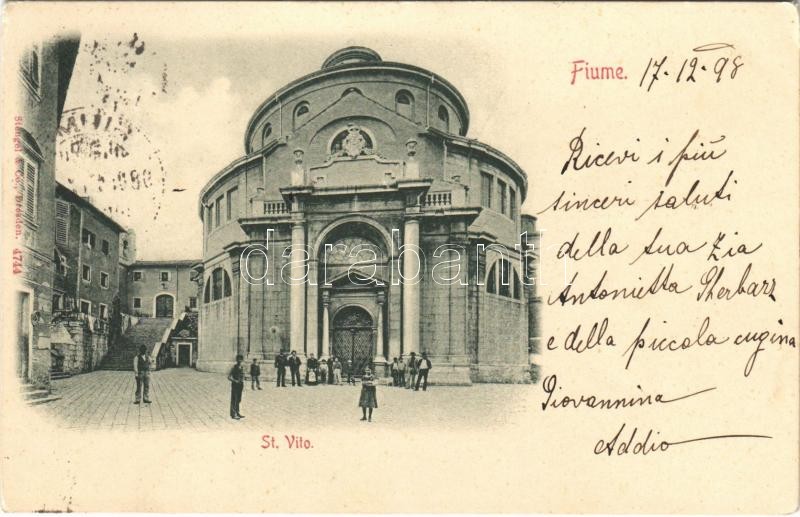 Fiume. 17.12.98
Ricevi i più
sinceri saluti
della tua Zia
Antonietta
e della piccola cugina
Giovannina
Addio
St. Vito.
Stengel & Co., Dresden. 4744
darabanth